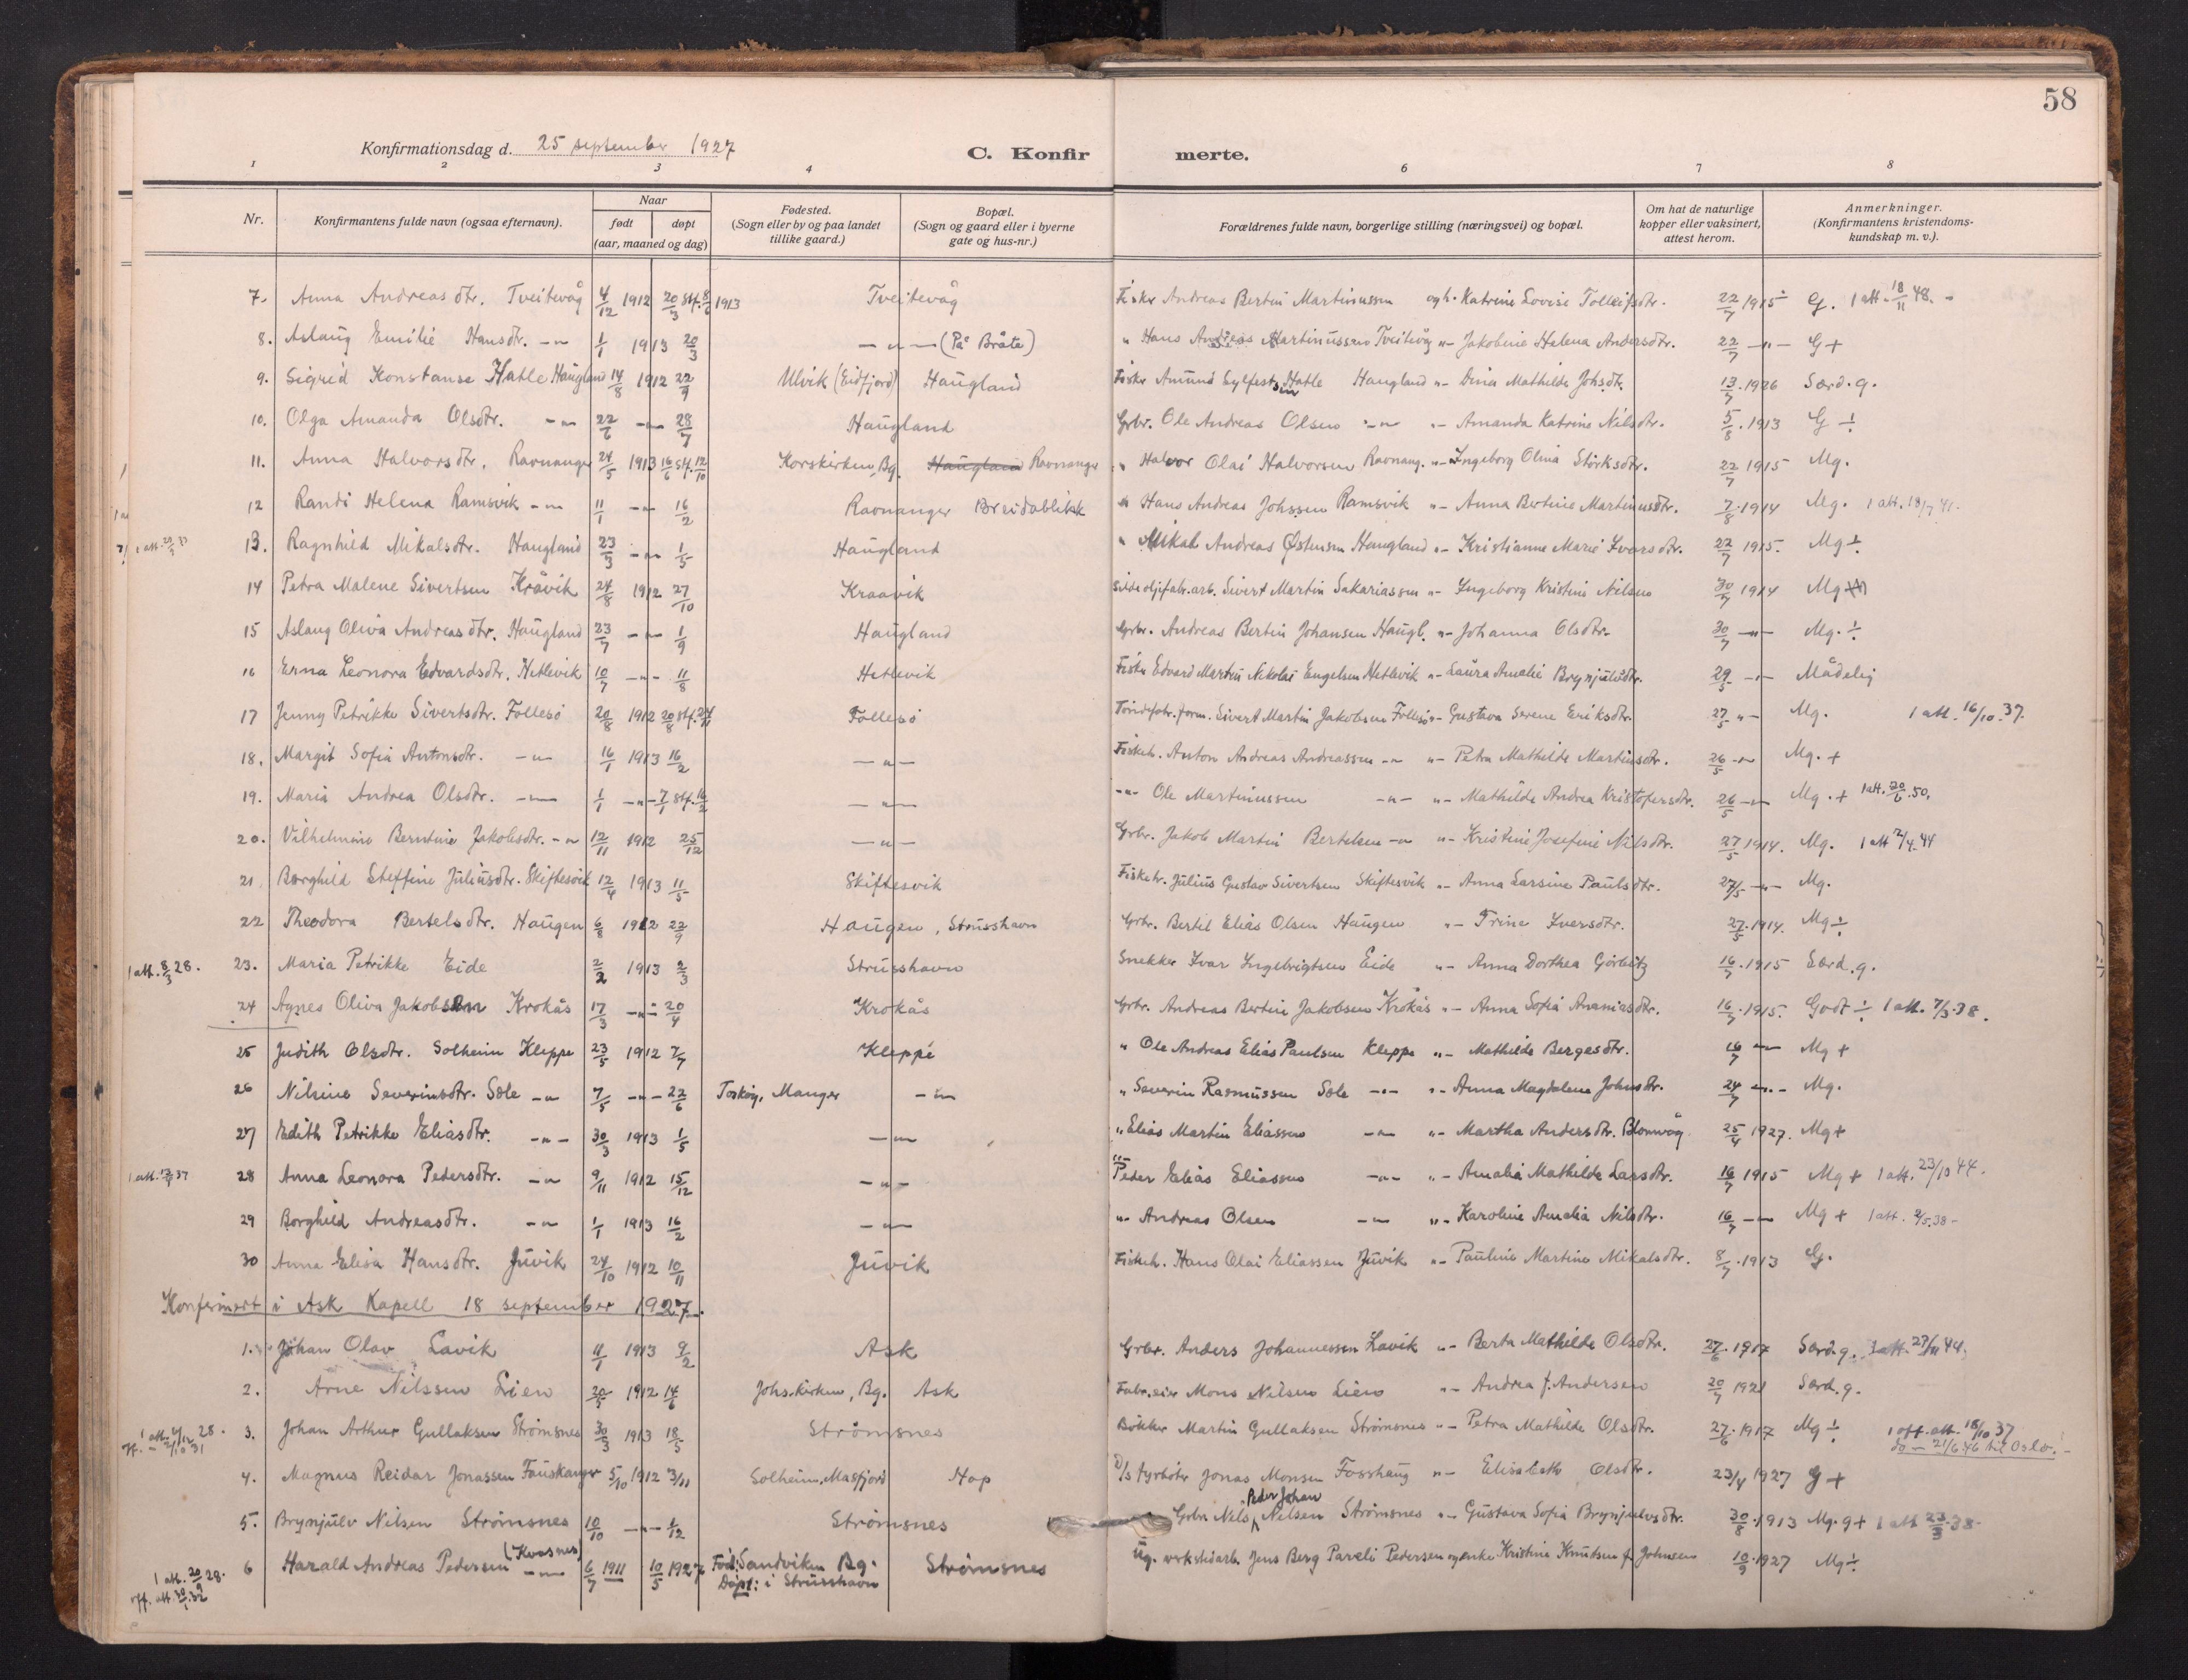 58
Konfirmationsdag d. 25 september 1927
C. Konfir merte.
1 2 3 4 6 7 8
Nr. Konfirmantens fulde navn (ogsaa efternavn). Naar født døpt (aar, maaned og dag) Fødested. (Sogn eller by og paa landet tillike gaard.) Bopæl. (Sogn og gaard eller i byerne gate og hus-nr.) Forældrenes fulde navn, borgerlige stilling (næringsvei) og bopæl. Om hat de naturlige kopper eller vaksinert, attest herom. Anmerkninger. (Konfirmantens kristendoms-kundskap m. v.).
7. Anna Andreasdtr. Tveitevåg 4/12 1912 20/3 stf. 8/6 1913 Tveitevåg Fisker Andreas Bertin Martinussen og h. Katrine Lovise Tolleifsdtr. 22/7 1915 G. 1 att. 18/11 48. -
8. Aslaug Emilie Hansdtr. -"- 1/1 1913 20/3 -"- (På Bråte) " Hans Andreas Martinussen Tveitevåg "- Jakobine Helena Andersdtr. 22/7 -"- G+
9. Sigrid Konstanse Hatle Haugland 14/8 1912 22/9 Ulvik (Eidfjord) Haugland Fisker Amund Sylfestsen Hatle Haugland "- Dina Mathilde Johsdtr. 13/7 1926 Særd. g.
10. Olga Amanda Olsdtr. -"- 22/6 -"- 28/7 Haugland Grbr. Ole Andreas Olsen -"- "- Amanda Katrine Nilsdtr. 5/8. 1913 G ÷
11. Anna Halvorsdtr. Ravnanger 24/5 1913 16/6 stf. 12/10 Korskirken, Bg. Haugland Ravnanger " Halvor Olai Halvorsen Ravnang. "- Ingeborg Olina Störksdtr. 22/7 1915 Mg.
12 Randi Helena Ramsvik -"- 11/1 -"- 16/2 Ravnanger Breidablikk " Hans Andreas Johssen Ramsvik "- Anna Bertine Martinusdtr. 7/8. 1914 Mg. 1 att. 18/7 41.
1 att. 20/3 33 13. Ragnhild Mikalsdtr. Haugland 23/3 -"- 1/5 Haugland " Mikal Andreas Østensen Haugland "- Kristianne Marie Ivarsdtr. 22/7 1915. Mg ÷
14 Petra Malene Sivertsen Kråvik 24/8 1912 27/10 Kraavik Sildoljefabr.arb. Sivert Martin Sakariassen "- Ingeborg Kristine Nilsen 30/7 1914 Mg
15 Aslaug Oliva Andreasdtr. Haugland 23/7 -"- 1/9 Haugland Grbr. Andreas Bertin Johansen Haugl. "- Johanna Olsdtr. 30/7 -"- Mg. ÷
16 Erna Leonora Edvardsdtr. Hetlevik 10/7 -"- 11/8 Hetlevik Fisker Edvard Martin Nikolai Engelsen Hetlevik "- Laura Amalie Brynjulvsdtr. 29/5 -"- Mådelig
17 Jenny Petrikke Sivertsdtr. Follesö 20/8 1912 20/8 stf. 24/11 Follesö Töndefabr. form. Sivert Martin Jakobsen Follesö "- Gustava Serene Eriksdtr. 27/5 "- Mg. 1 att. 16/10. 37.
18. Margit Sofia Antonsdtr. -"- 16/1 1913 16/2 -"- Fiskeh. Anton Andreas Andreassen -"- "- Petra Mathilde Martinsdtr. 26/5 -"- Mg. +
19. Maria Andrea Olsdtr. -"- 1/1 -"- 7/1 stf. 16/2 -"- -"- Ole Martinussen -"- "- Mathilde Andrea Kristofersdtr. 26/5 -"- Mg. + 1 att. 20/6. 50.
20. Vilhelmine Berntine Jakobsdtr. -"- 12/11 1912 25/12 -"- Grbr. Jakob Martin Bertelsen -"- "- Kristine Josefine Nilsdtr. 27/5 1914. Mg. 1 att 2/4. 44
21. Borghild Steffine Juliusdtr. Skiftesvik 12/4 1913 11/5 Skiftesvik Fiskeh. Julius Gustav Sivertsen Skiftesvik "- Anna Larsine Paulsdtr. 27/5 -"- Mg.
22 Theodora Bertelsdtr. Haugen 6/8 1912 22/9 Haugen, Strusshavn Grbr. Bertil Elias Olsen Haugen "- Trine Iversdtr. 27/5. 1914. Mg ÷
1 att. 8/3 28. 23. Maria Petrikke Eide 2/2 1913 2/3 Strusshavn Snekker Ivar Ingebrigtsen Eide "- Anna Dorthea Görbitz 16/7. 1915 Særd. g.
24 Agnes Oliva Jakobsen Krokås 17/3 -"- 20/4 Krokås Grbr. Andreas Bertin Jakobsen Krokås "- Anna Sofia Ananiasdtr. 16/7. 1915. Godt ÷ 1 att. 7/3. 38.
25 Judith Olsdtr. Solheim Kleppe 23/5 1912 7/7 Kleppe " Ole Andreas Elias Paulsen Kleppe "- Mathilde Bergesdtr. 16/7 -"- Mg +
26 Nilsine Severinsdtr. Sæle -"- 7/5 -"- 22/6 Toskøy, Manger -"- " Severin Rasmussen Sæle -"- "- Anna Magdalena Johnsdtr. 24/7 -"- Mg.
27 Edith Petrikke Eliasdtr. -"- 30/3 1913 1/5 -"- " Elias Martin Eliassen -"- "- Martha Andersdtr. Blomvåg. 25/4 1927. Mg+
1 att. 37 28 Anna Leonora Pedersdtr. -"- 9/11 1912 15/12 -"- " Peder Elias Eliassen -"- "- Amalia Mathilde Larsdtr. 16/7 1915 Mg + 1 att. 23/10 44.
29 Borghild Andreasdtr. -"- 1/1 1913 16/2 -"- "- Andreas Olsen -"- "- Karoline Amalia Nilsdtr. 16/7 -"- Mg + 1 att. 2/5. 38 -
30 Anna Elisa Hansdtr. Juvik 24/10 1912 10/11 Juvik Fiskeh. Hans Olai Eliassen Juvik "- Pauline Martine Mikalsdtr. 8/7. 1913 G.
Konfirmert i Ask Kapell 18 september 1927.
1. Johan Olav Lavik 4/1 1913 9/2 Ask Grbr. Anders Johannessen Lavik "- Berta Mathilde Olsdtr. 27/6. 1917 Særd. g. 1 att. 27/11 44.
2. Arne Nilssen Lien 20/5 1912 14/6 Johs.kirken, Bg. Ask Fabr.eier Mons Nilsen Lien "- Andrea f. Andersen 20/7 1921 Særd. g.
1 att. 4/12 28. 3. Johan Arthur Gullaksen Strömsnes 30/3 1913 18/5 Strömsnes Bökker Martin Gullaksen Strömsnes "- Petra Mathilde Olsdtr. 27/6. 1917 Mg ÷ 1 off. att. 16/10 37
off. - 2/10 31 do - 21/6. 46 til Oslo. -
4. Magnus Reidar Jonassen Fauskanger 5/10 1912 3/11 Solheim, Masfjord Hop D/s fyrböter Jonas Monsen Fosshaug "- Elisabeth Olsdtr. 23/4 1927 G +
5. Brynjulv Nilsen Strömsnes 10/10 -"- 1/12 Strömsnes Grbr. Nils Peder Johan Nilsen Strömsnes "- Gustava Sofia Brynjulvsdtr. 30/8. 1913 Mg. g + 1 att 23/3. 38 -
1 att. 20/9 28. 6 Harald Andreas Pedersen (Kvasnes) -"- 6/7 1911 10/5 1927 Föd: Sandviken Bg. Strömsnes Ug. verkstedarb. Jens Berg Pareli Pedersen og enke Kristine Knutsen f. Johnsen 10/9. 1927 Mg ÷
off. att. 30/1. 32 Döpt: i Strusshavn